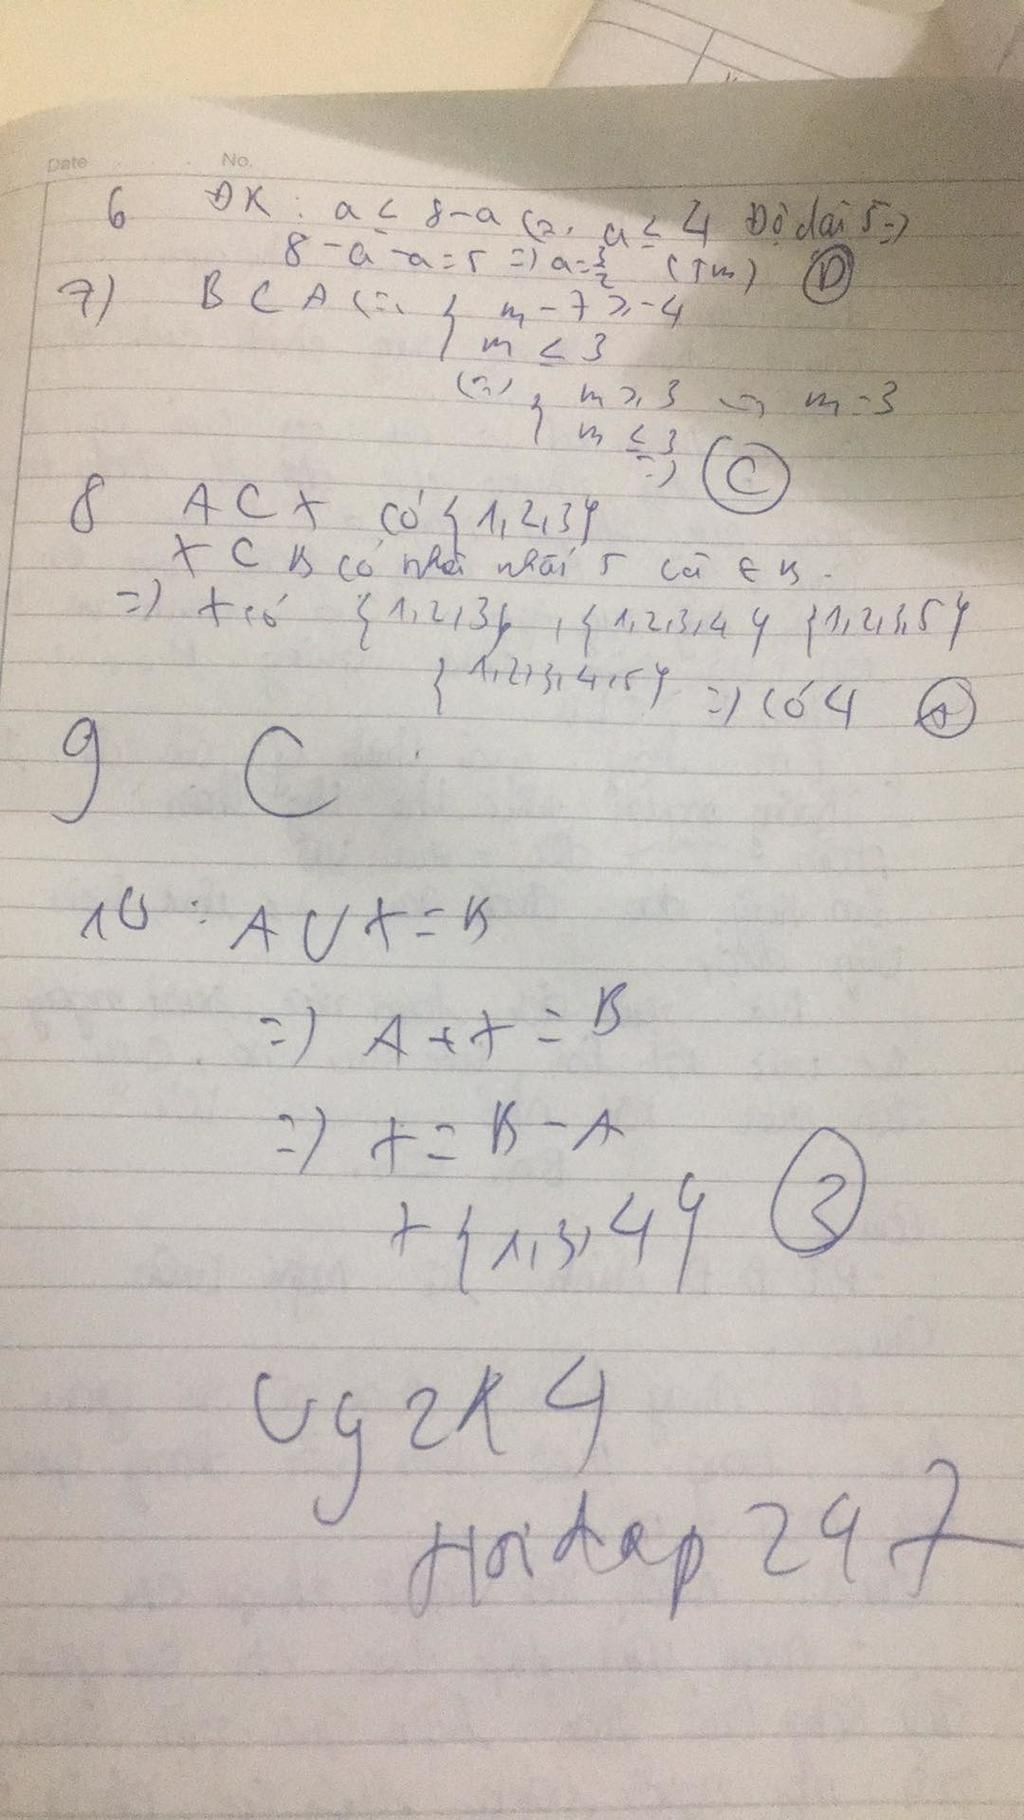 Date No.
6 ĐK : a ≤ 8-a (=) a ≤ 4 Độ dài 5 =)
8 - a - a = 5 =) a = 3/2 (tm) D
7) B ⊂ A (=) { m - 7 ≥ -4
m ≤ 3
(=) { m ≥ 3 =) m = 3
m ≤ 3
=) C
8 A ⊂ X có {1,2,3}
X ⊂ B có 5 ∈ B.
=) X có {1,2,3}, {1,2,3,4} {1,2,3,5}
{1,2,3,4,5} =) có 4 A
9 C
10 : A ∪ X = B
=) A + X = B
=) X = B - A
X {1,3,4} 3
Ug2k4
Hoidap247